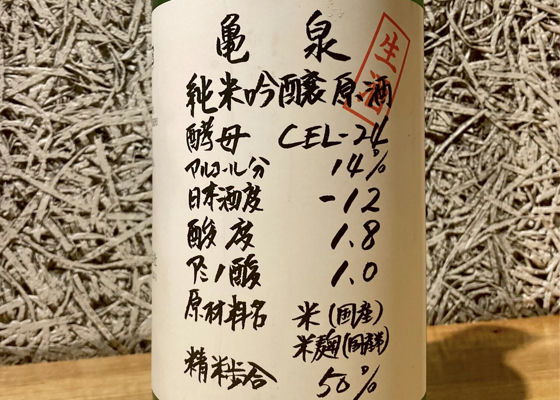 亀泉
生酒
純米吟醸原酒
酵母 CEL-24
アルコール分 14%
日本酒度 -12
酸度 1.8
アミノ酸 1.0
原材料名 米(国産)
米麹(国産)
精米歩合 50%